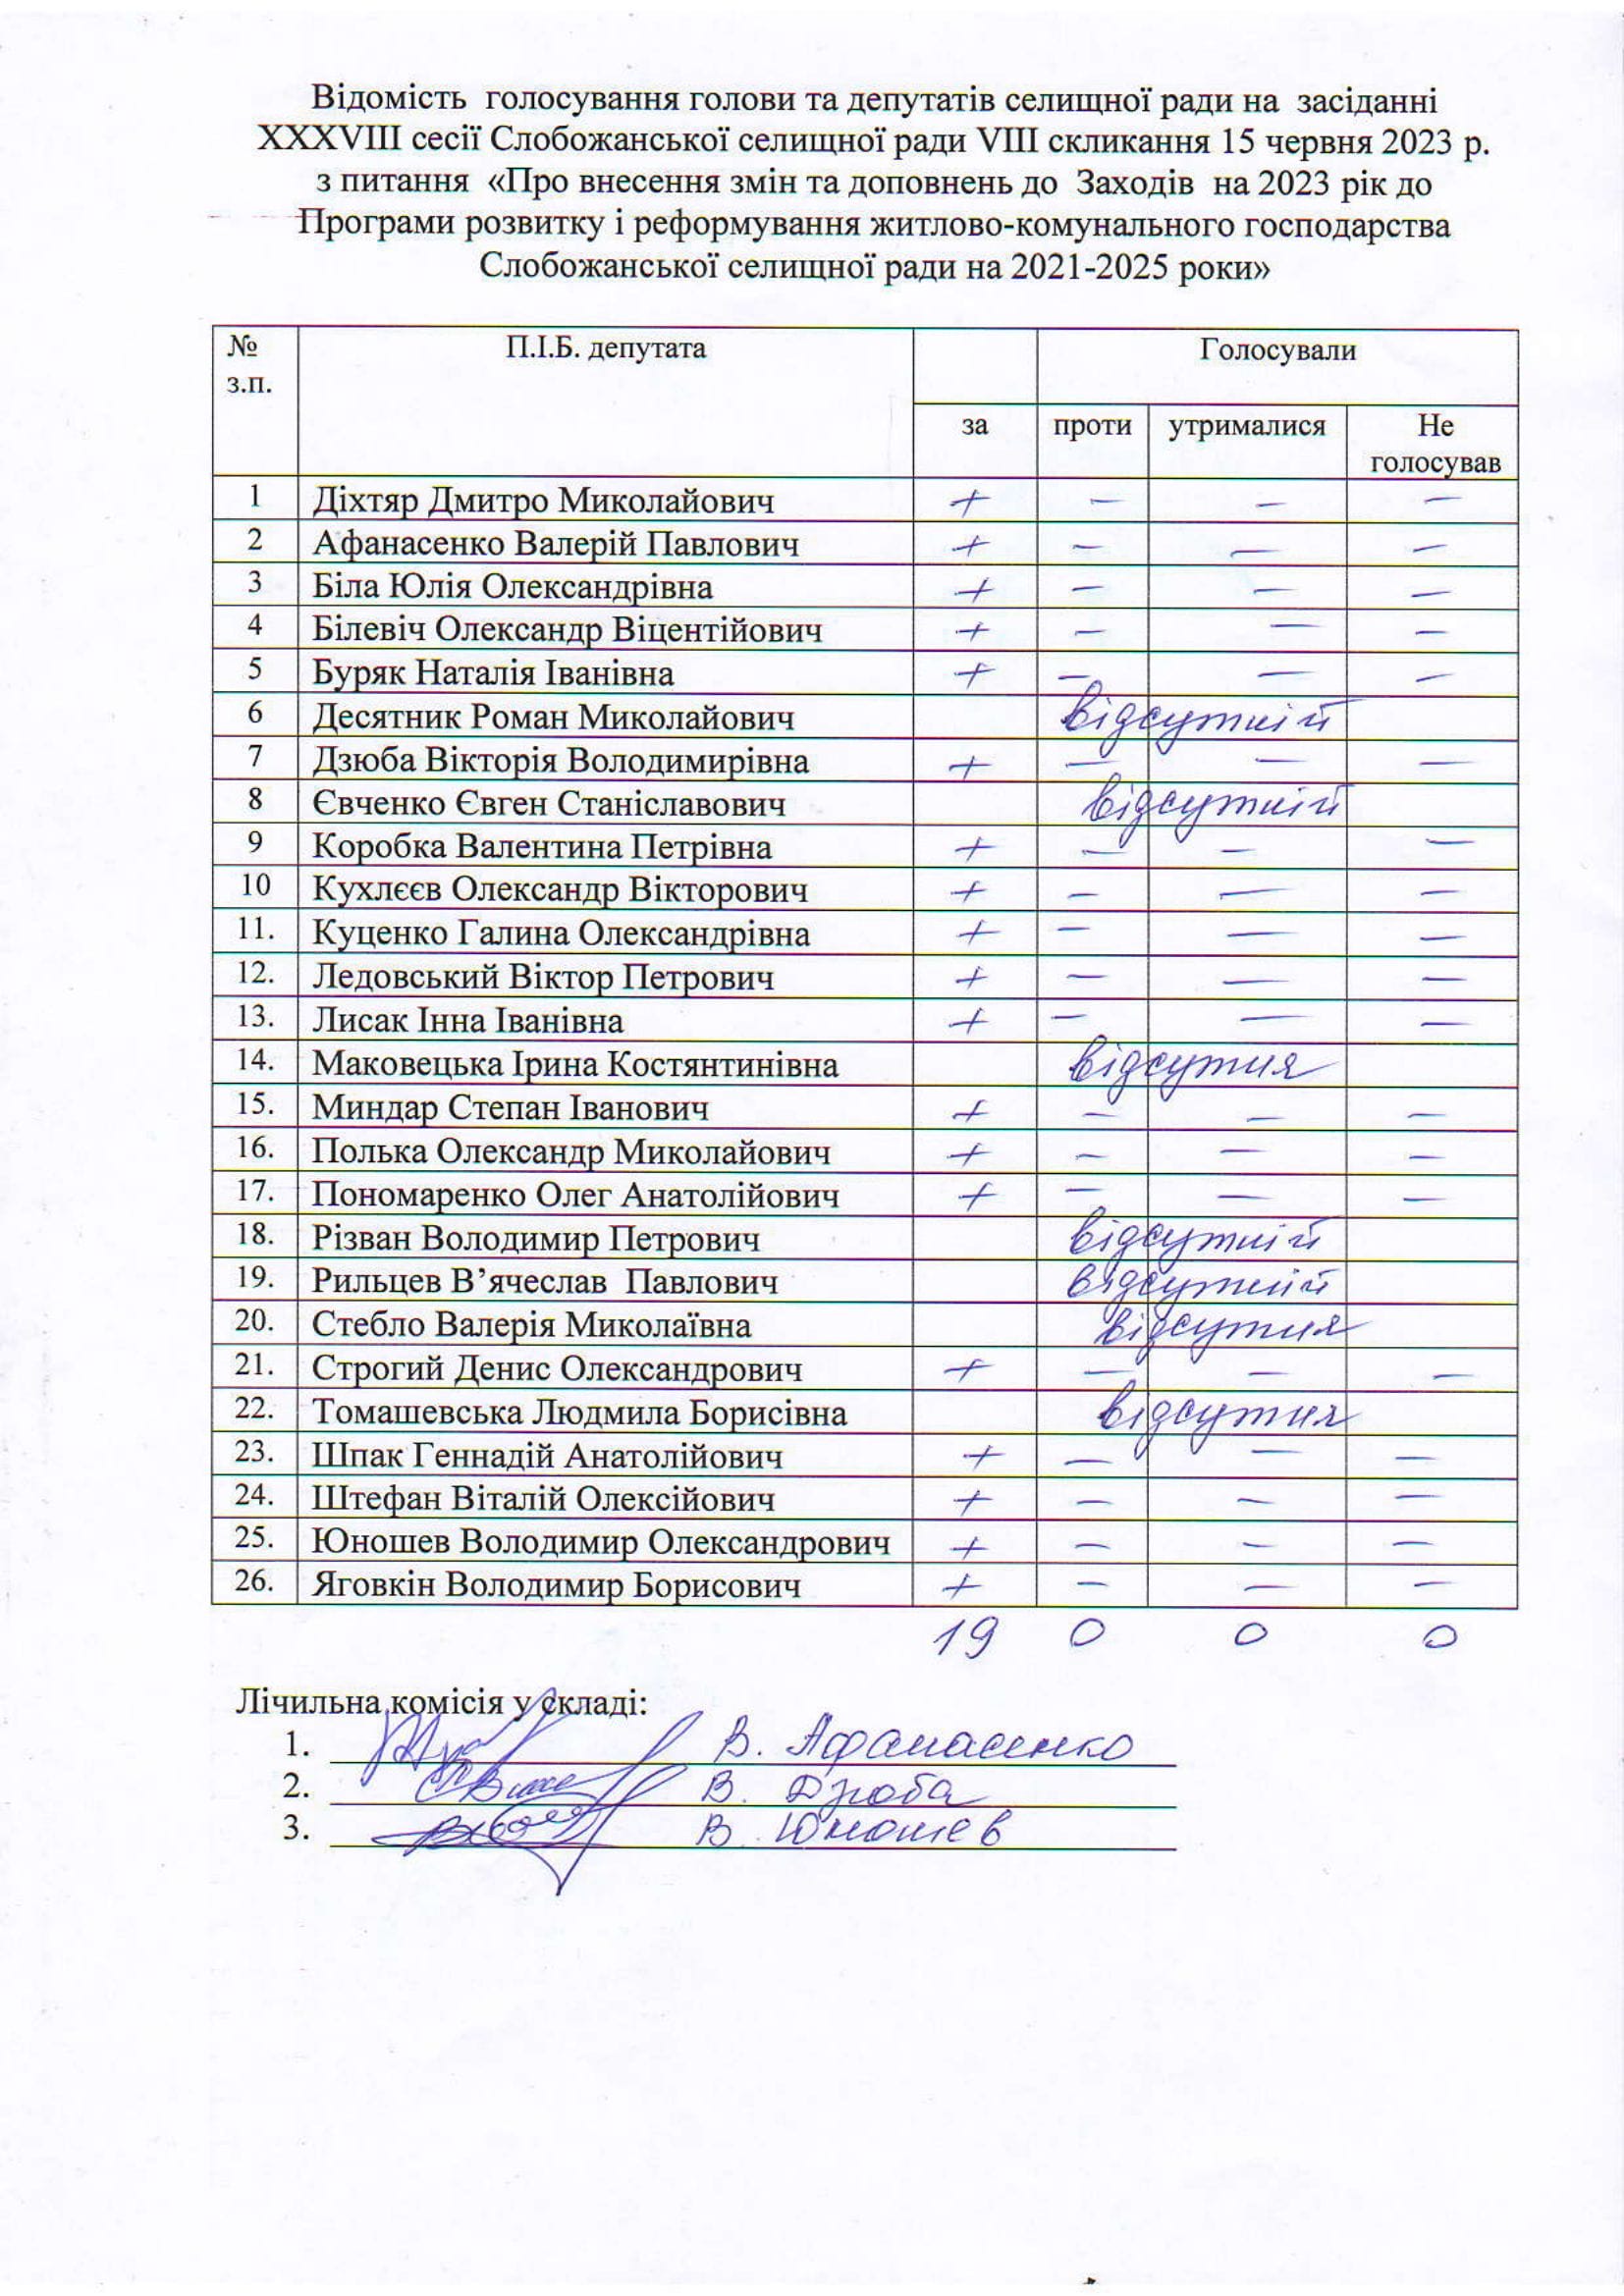 Відомість голосування голови та депутатів селищної ради на засіданні
XXXVIII сесії Слобожанської селищної ради VIII скликання 15 червня 2023 р.
з питання «Про внесення змін та доповнень до Заходів на 2023 рік до
Програми розвитку і реформування житлово-комунального господарства
Слобожанської селищної ради на 2021-2025 роки»
№ з.п. П.І.Б. депутата Голосували
за проти утрималися Не голосував
1 Діхтяр Дмитро Миколайович + – – –
2 Афанасенко Валерій Павлович + – – –
3 Біла Юлія Олександрівна + – – –
4 Білевіч Олександр Віцентійович + – – –
5 Буряк Наталія Іванівна + – – –
6 Десятник Роман Миколайович відсутній
7 Дзюба Вікторія Володимирівна + – – –
8 Євченко Євген Станіславович відсутній
9 Коробка Валентина Петрівна + – – –
10 Кухлєєв Олександр Вікторович + – – –
11. Куценко Галина Олександрівна + – – –
12. Ледовський Віктор Петрович + – – –
13. Лисак Інна Іванівна + – – –
14. Маковецька Ірина Костянтинівна відсутня
15. Миндар Степан Іванович + – – –
16. Полька Олександр Миколайович + – – –
17. Пономаренко Олег Анатолійович + – – –
18. Різван Володимир Петрович відсутній
19. Рильцев В’ячеслав Павлович відсутній
20. Стебло Валерія Миколаївна відсутня
21. Строгий Денис Олександрович + – – –
22. Томашевська Людмила Борисівна відсутня
23. Шпак Геннадій Анатолійович + – – –
24. Штефан Віталій Олексійович + – – –
25. Юношев Володимир Олександрович + – – –
26. Яговкін Володимир Борисович + – – –
19 0 0 0
Лічильна комісія у складі:
1. В. Афанасенко
2. В. Дзюба
3. В. Юношев